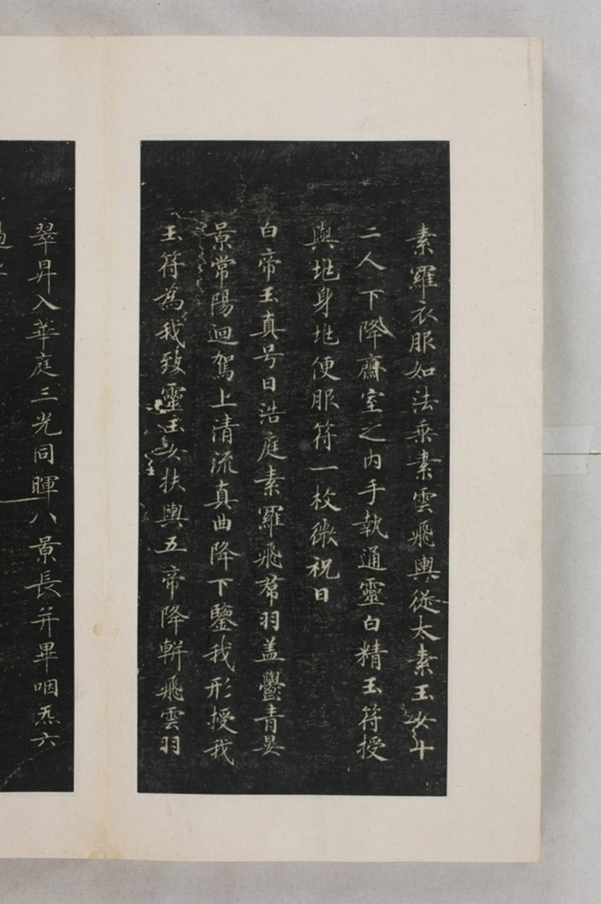 素羅衣服如法乘素雲飛輿從太素玉女十
二人下降齋室之内手執通靈白精玉符授
與地身地便服符一枚微祝曰
白帝玉真号曰浩庭素羅飛帬羽盖鬱青晨
景常陽迴駕上清流真曲降下鑒我形授我
玉符為我致靈玉女扶輿五帝降軿飛雲羽
翠昇入華庭三光同暉八景長并畢咽炁六
過止